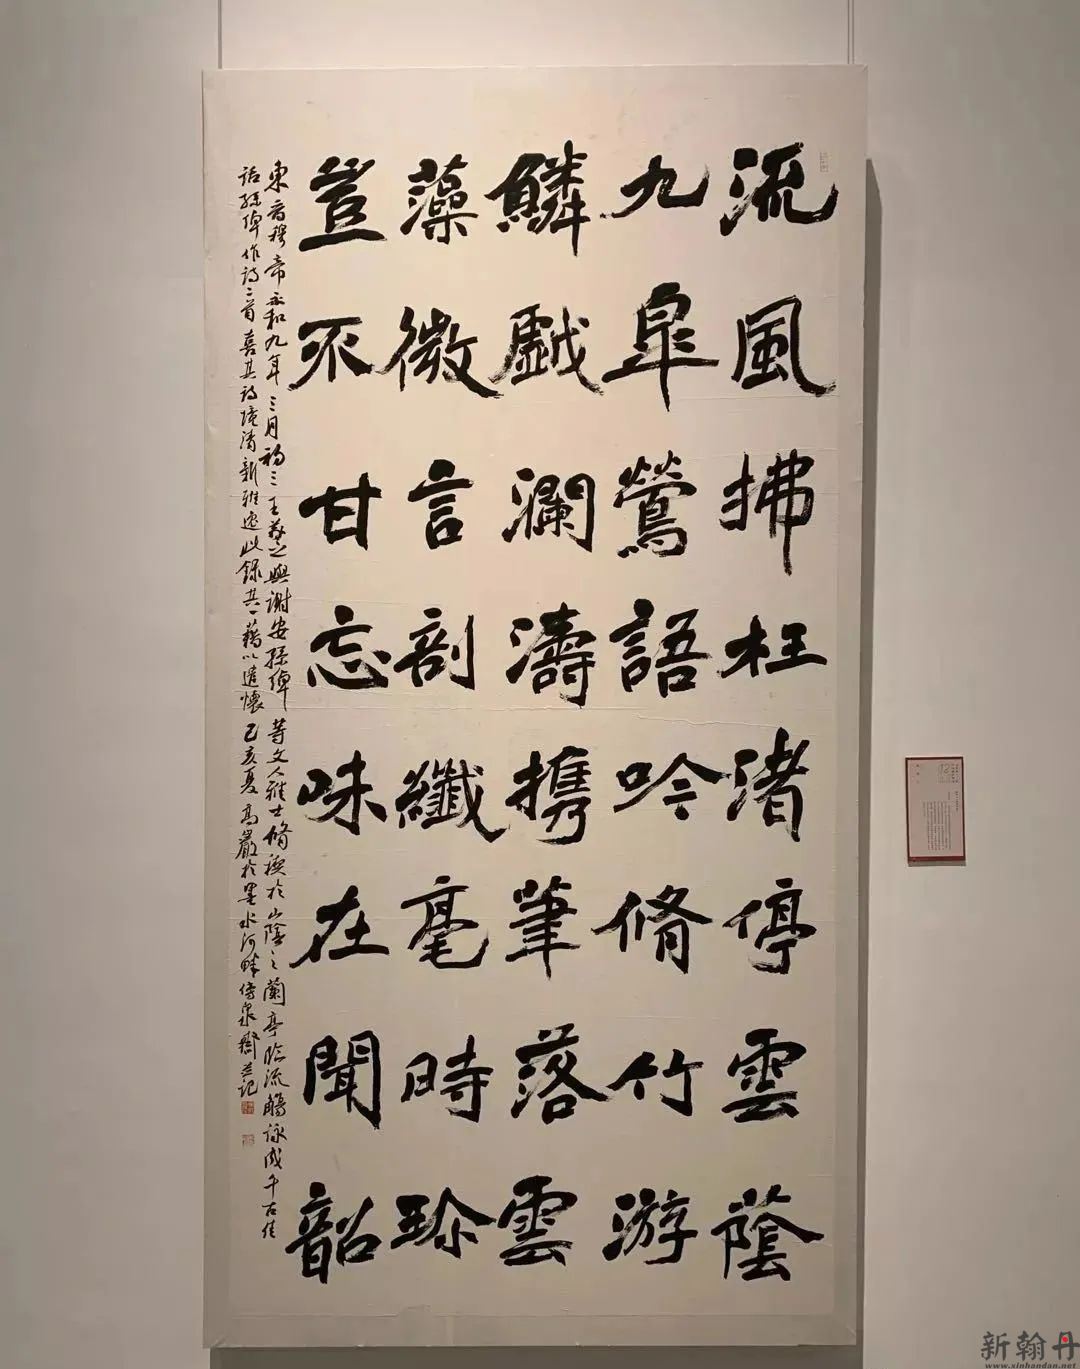 流風拂枉渚停雲蔭
九皐鶯語吟脩竹游
鱗戲瀾濤攜筆落雲
藻微言剖纖毫時珎
豈不甘忘味在聞韶
東晉穆帝永和九年三月初三王羲之與謝安孫綽等文人雅士脩禊於山陰之蘭亭臨流觴詠成千古佳
話孫綽作詩二首喜其詩境清新雅逸此錄其一藉以遣懷己亥夏高巖於墨水河畔傍泉齋并記
新翰丹
www.xinhandan.net